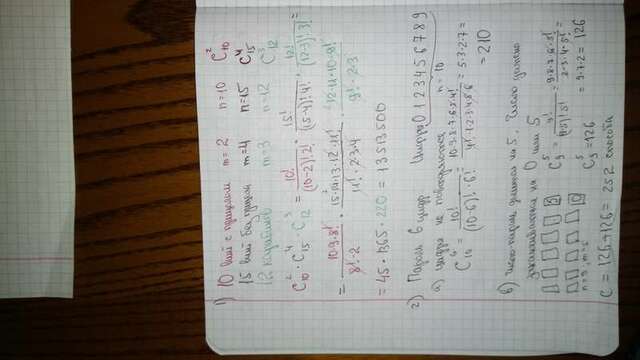 1) 10 винт с прицелом m = 2 n = 10 C²₁₀
15 винт без прицел m = 4 n = 15 C⁴₁₅
12 карабинов m = 3 n = 12 C³₁₂
C²₁₀ · C⁴₁₅ · C³₁₂ = 10!/((10-2)! 2!) · 15!/((15-4)! 4!) · 12!/((12-3)! 3!) =
= 10·9·8!/(8!·2) · 15·14·13·12·11!/(11!·2·3·4) · 12·11·10·9!/(9!·2·3)
= 45 · 1365 · 220 = 13513500
2) Пароль 6 цифр Цифры 0 1 2 3 4 5 6 7 8 9
n = 10
а) цифры не повторяются
C⁶₁₀ = 10!/((10-6)! · 6!) = 10·9·8·7·6·5·4!/(4!·1·2·3·4·5·6) = 5·3·2·7 =
= 210
в) число-пароль делится на 5. Число должно
заканчиваться на 0 или 5
C⁵₉ = 9!/((9-5)! 5!) = 9·8·7·6·5!/(2·3·4·5!) =
n = 9, m = 5 C⁵₉ = 126 = 9·7·2 = 126
C = 126 + 126 = 252 способа